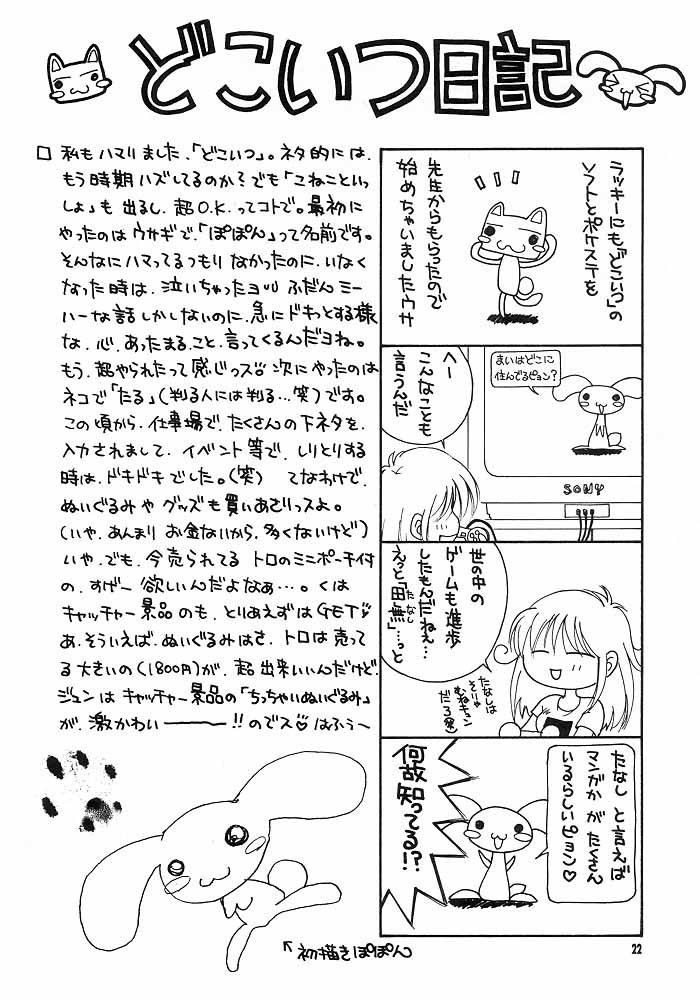 どこいつ日記
□ 私もハマりました、「どこいつ」。ネタ的には、
もう時期ハズしてるのか?でも「こねこといっ
しょ」も出るし、超O.K.ってコトで。最初に
やったのはウサギで、「ぽぽん」って名前です。
そんなにハマってるつもりなかったのに、いなく
なった時は、泣いちゃったヨリリ ふだんミー
ハーな話しかしないのに、急にドキっとする様
な、心、あったまること、言ってくるんだヨね。
もう、超やられたって感じっス 次にやったのは
ネコで「たる」(判る人には判る…笑)です。
この頃から、仕事場で、たくさんの下ネタを、
入力されまして、イベント等で、しりとりする
時は、ドキドキでした。(笑) てなわけで、
ぬいぐるみやグッズも買いあさりっスよ。
(いや、あんまりお金ないから、多くないけど)
いや、でも、今売られてるトロのミニポーチ付
の、すげー欲しいんだよなあ…。くは
キャッチャー景品のも、とりあえずはGET♡
あ、そういえば、ぬいぐるみはさ、トロは売って
る大きいの(1800円)が、超出来いいんだけど、
ジュンはキャッチャー景品の「ちっちゃいぬいぐるみ」
が、激かわいー!!のでス♡はふぅ〜
↖初描きぽぽん
ラッキーにも「どこいつ」の
ソフトとポケステを
先生からもらったので
始めちゃいましたウサ
まいはどこに
住んでるピョン?
へー
こんなことも
言うんだ
SONY
世の中の
ゲームも進歩
したもんだねぇ…
えっと「田無」…っと
たなし
たなしは
そりゃ
むねキュン
だろ(笑)
たなしと言えば
マンガかがたくさん
いるらしいピョン♡
何故知ってる!?
22